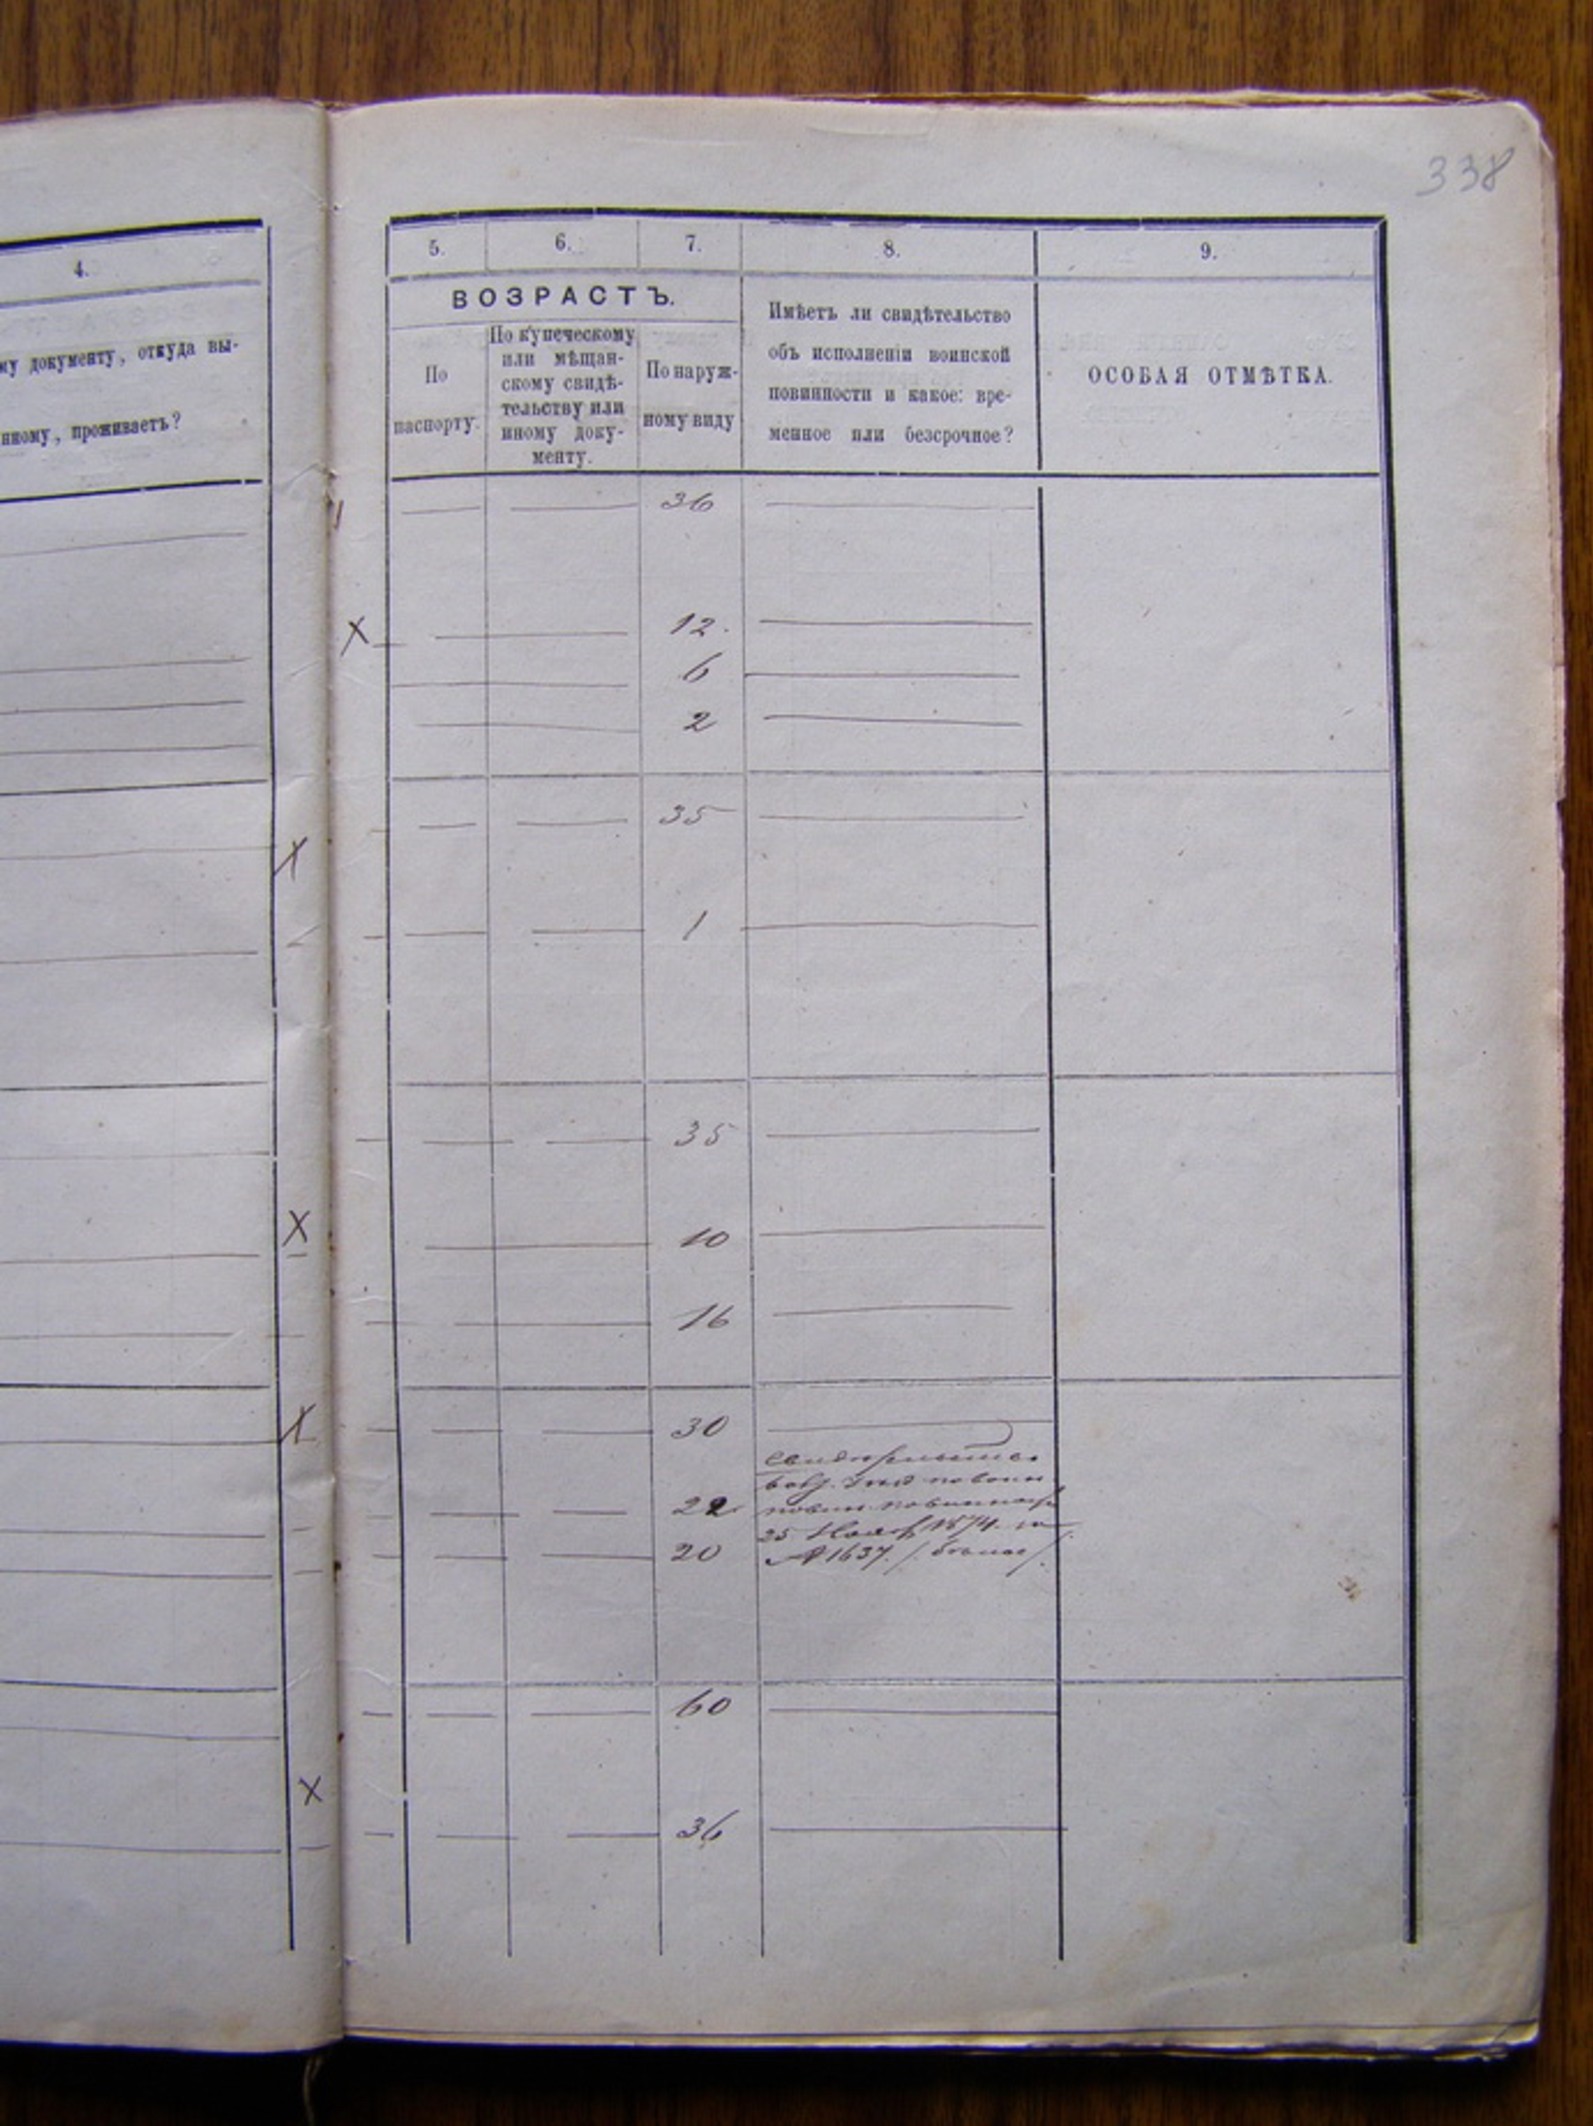 338
4.
му документу, откуда вы-
нному, проживаетъ?
5. 6. 7. 8. 9.
ВОЗРАСТЪ.
По
паспорту.
По купеческому
или мѣщан-
скому свидѣ-
тельству или
иному доку-
менту.
По наруж-
ному виду
Имѣетъ ли свидѣтельство
объ исполненіи воинской
повинности и какое: вре-
менное или безсрочное?
ОСОБАЯ ОТМѢТКА.
36
12.
6
2
35
1
35
10
16
30
22
20
25 1874
№ 1637
60
36